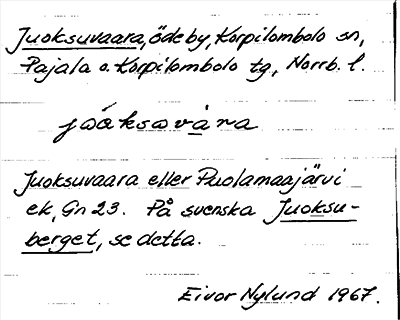 Juoksuvaara, ödeby, Korpilombolo sn,
Pajala o. Korpilombolo tg, Norrb. l.
Juoksuvaara eller Puolamaajärvi
ek, Gn 23. På svenska Juoksu-
berget, se detta.
Eivor Nylund 1967.